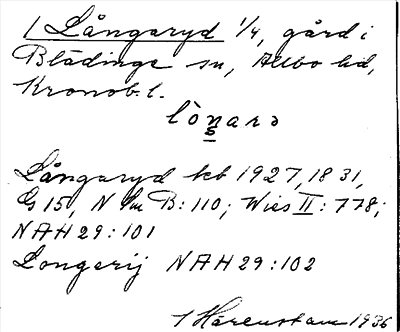 1 Långaryd 1/4, gård i
Blädinge sn, Allbo hd,
Kronob. l.
lònarə
Långaryd kb 1927, 1831,
G 15, N Sm B: 110; Wies II: 778;
NAH 29: 101
Longerij NAH 29: 102
Harenstam 1936